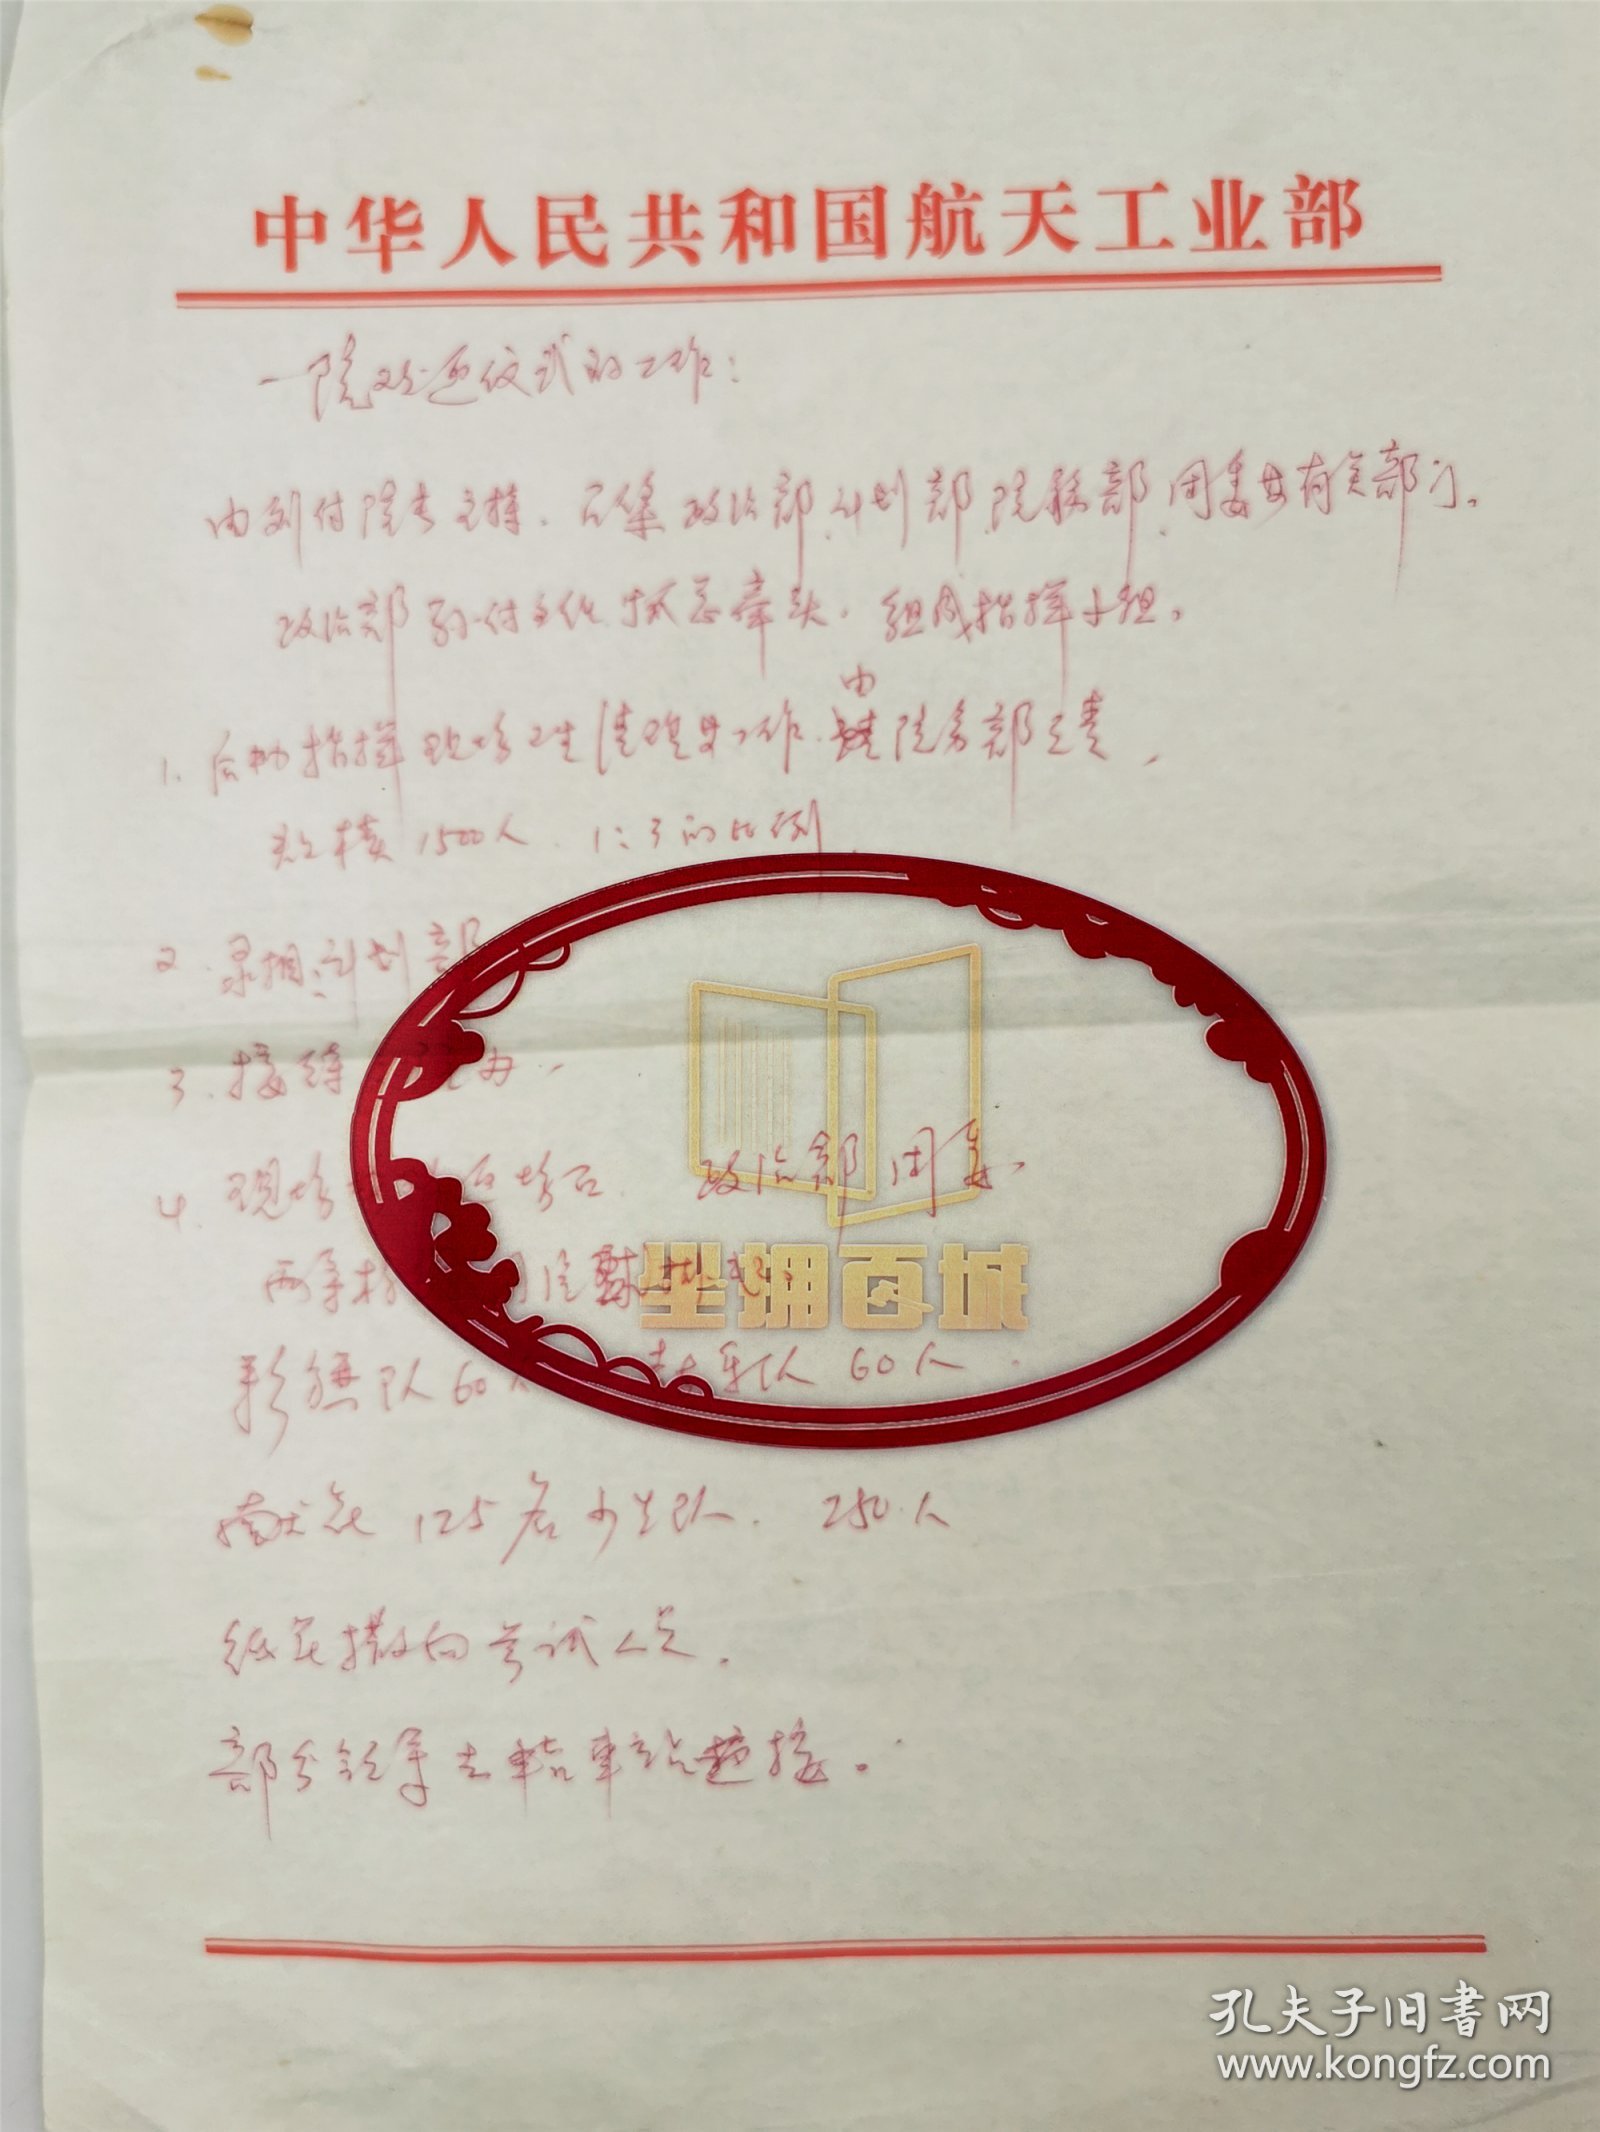 中华人民共和国航天工业部
一院欢迎仪式的工作：
由刘付院长主持．召集政治部、计划部、院务部、团委等有关部门。
政治部 付主任 抓总牵头．组成指挥小组。
由
1. 后勤指挥现场卫生清理等工作．院务部负责，
1500人．1:3的比例．
2. 录相：计划部
3. 接待 办．
4. 现场 政治部 团委．
彩 队60人 鼓乐队60人．
献花 125名少先队．250人
纸花撒向参试人员．
部分领导去 车站迎接。
城百拥坐
孔夫子旧书网
www.kongfz.com